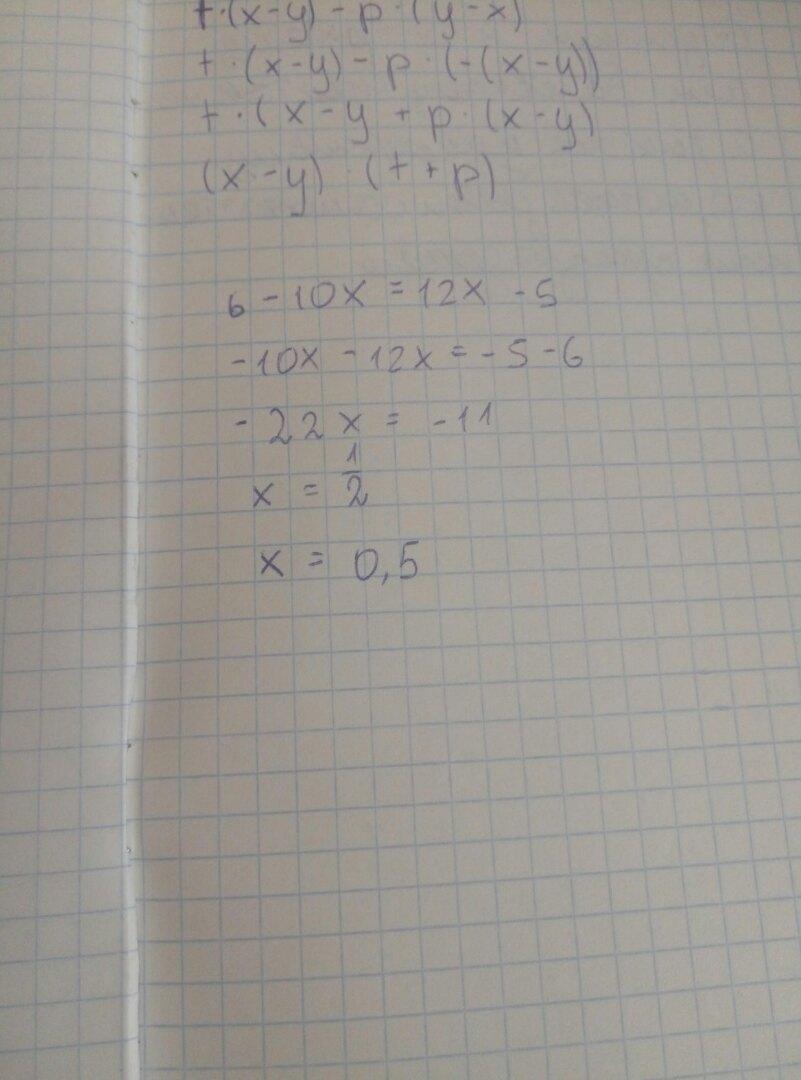 t·(x-y)-p·(y-x)
t·(x-y)-p·(-(x-y))
t·(x-y+p·(x-y)
(x-y)·(t+p)
6-10x=12x-5
-10x-12x=-5-6
-22x=-11
x=1/2
x=0,5